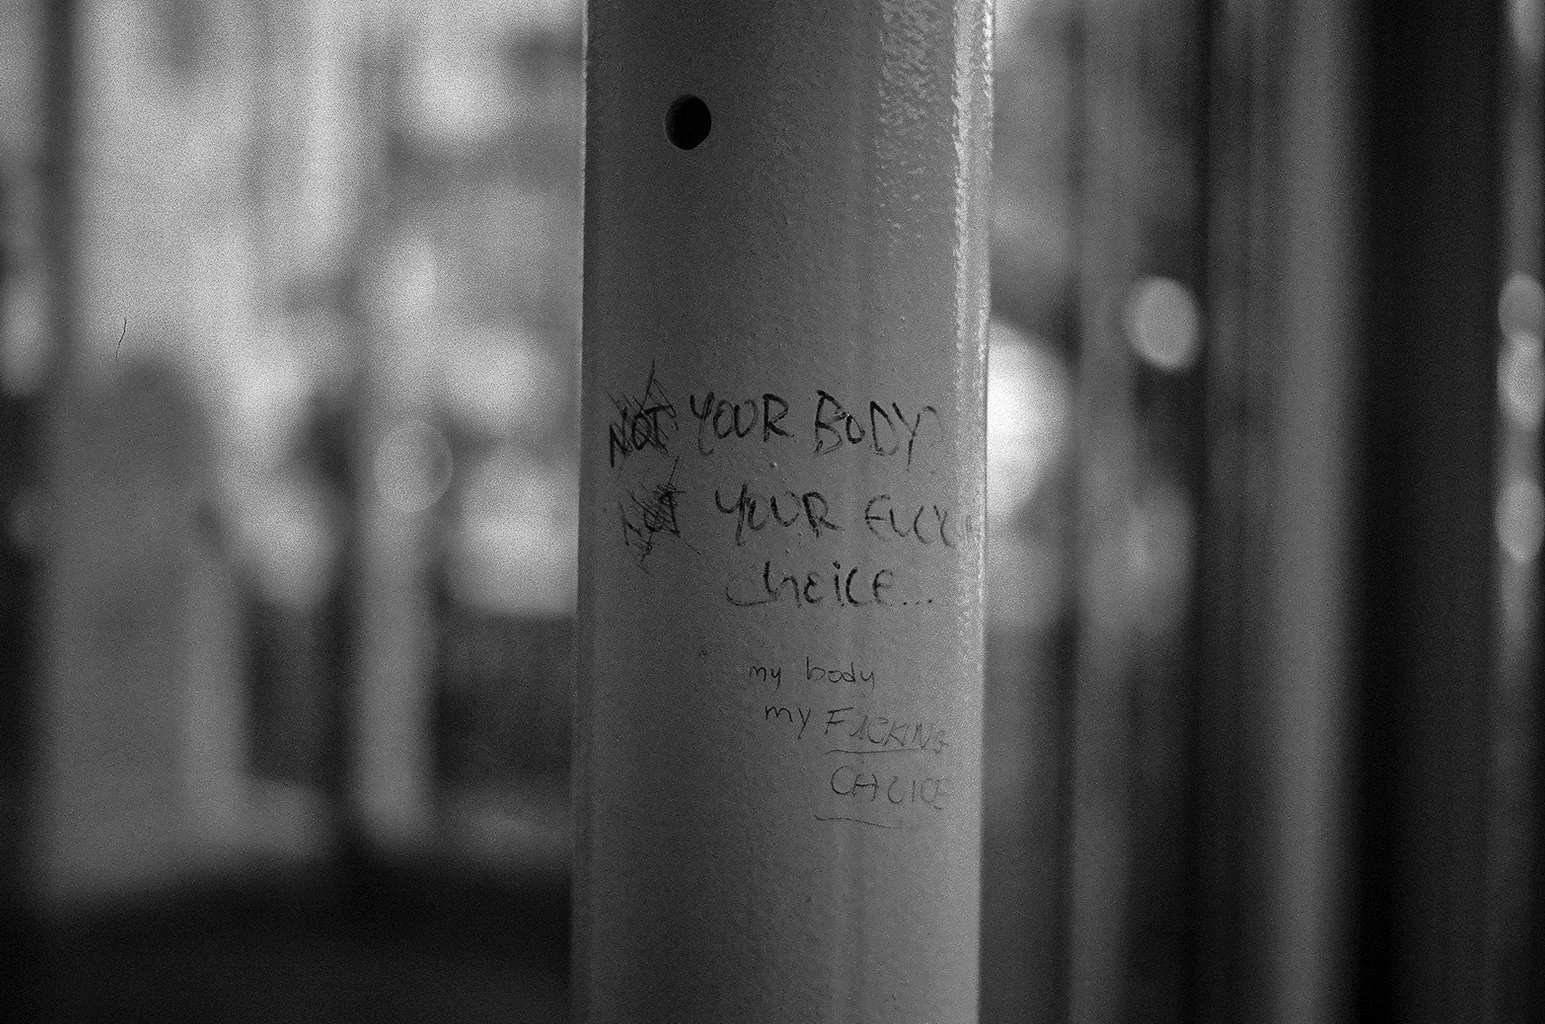 NOT YOUR BODY
NOT YOUR FUCK
choice...
my body
my FUCKING
CHOICE